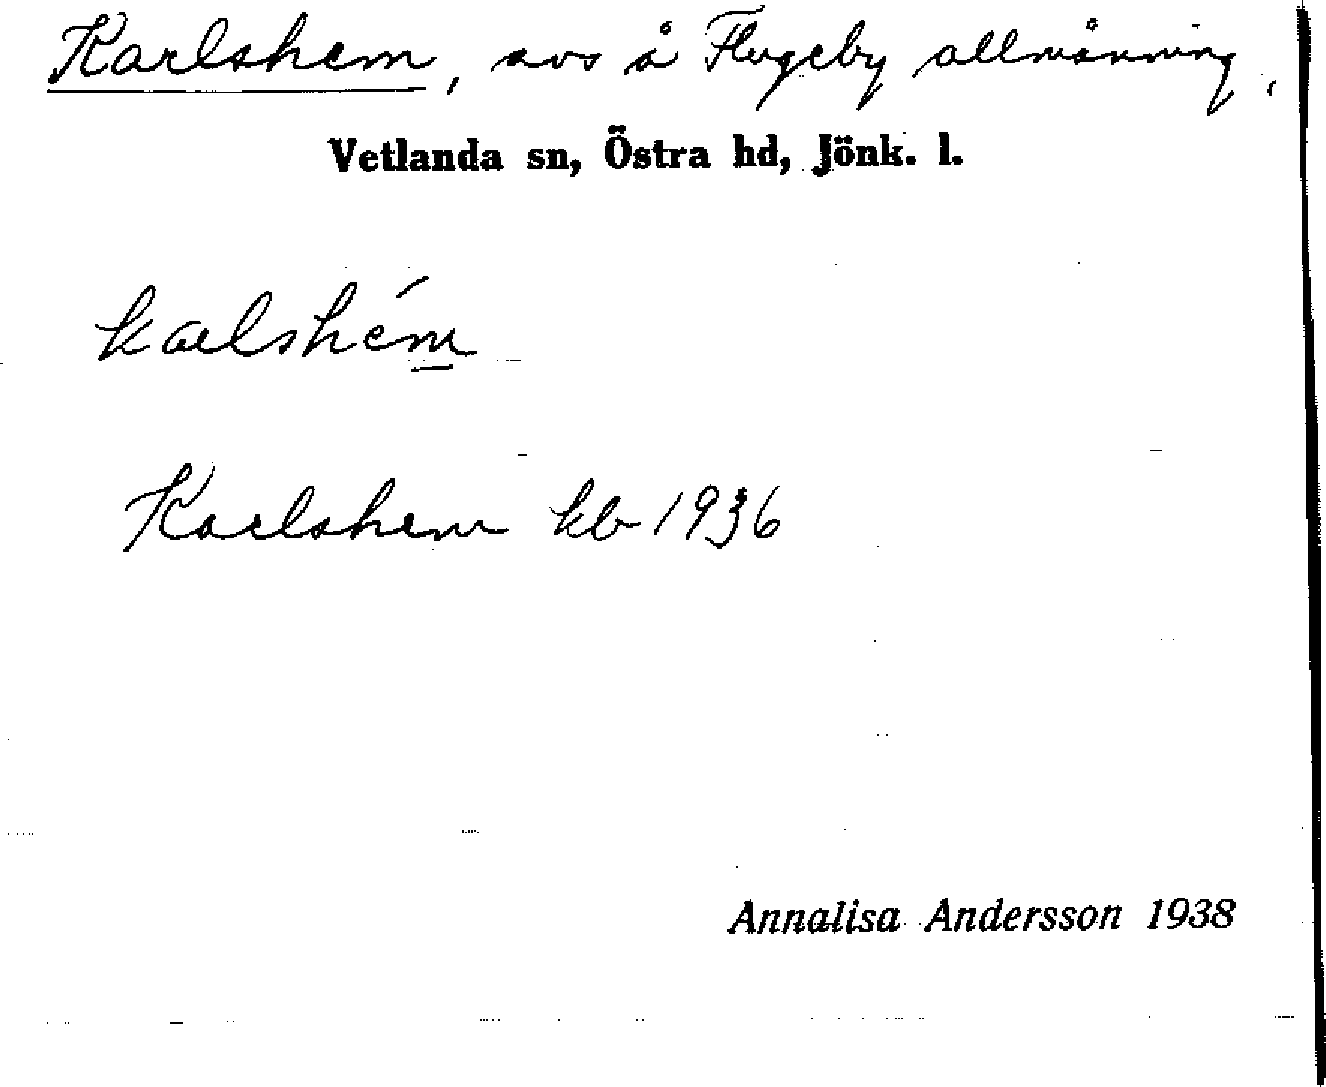 Karlshem, avs å Flugeby allmänning,
Vetlanda sn, Östra hd, Jönk. l.
kalshém
Karlshem kb 1936
Annalisa Andersson 1938